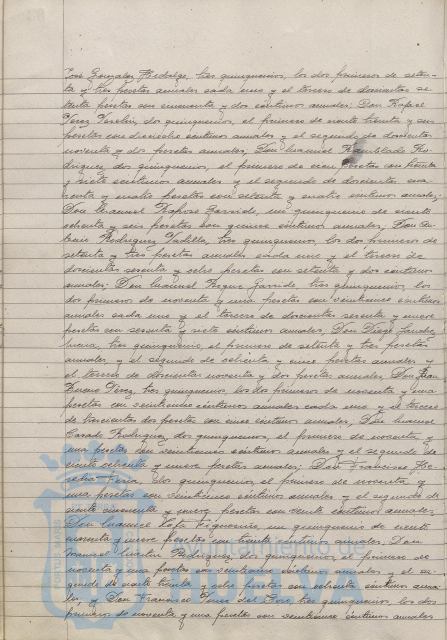 José Gonzalez Hidalgo, tres quinquenios, los dos primeros de seten-
ta y tres pesetas anuales cada uno y el tercero de doscientas se
tenta pesetas con cincuenta y dos céntimos anuales; Don Rafael
Perez dos quinquenios, el primero de ciento treinta y seis
pesetas con dieciocho céntimos anuales y el segundo de doscientas
noventa y dos pesetas anuales; Don Manuel Ro-
driguez dos quinquenios, el primero de cien pesetas con treinta
y siete céntimos anuales y el segundo de doscientas cua
renta y cuatro pesetas con setenta y cuatro céntimos anuales;
Don Manuel Garrido, un quinquenio de ciento
ochenta y seis pesetas con quince céntimos anuales; Don An-
tonio Rodriguez Padilla, tres quinquenios, los dos primeros de
setenta y tres pesetas anuales cada uno y el tercero de
doscientas sesenta y ocho pesetas con setenta y dos céntimos
anuales; Don Manuel Garrido, tres quinquenios, los
dos primeros de noventa y una pesetas con veinticinco céntimos
anuales cada uno y el tercero de doscientas sesenta y nueve
pesetas con sesenta y siete céntimos anuales; Don Diego
tres quinquenios, el primero de setenta y tres pesetas
anuales, y el segundo de ochenta y cinco pesetas anuales y
el tercero de doscientas noventa y dos pesetas anuales; Don Juan
Perez, tres quinquenios, los dos primeros de noventa y una
pesetas con veinticinco céntimos anuales cada uno y el tercero
de trescientas dos pesetas con once céntimos anuales; Don Manuel
Casado Rodriguez, dos quinquenios, el primero de noventa y
una pesetas con veinticinco céntimos anuales y el segundo de
ciento ochenta y nueve pesetas anuales; Don Francisco
dos quinquenios el primero de noventa y
una pesetas con veinticinco céntimos anuales y el segundo de
ciento cincuenta y nueve pesetas con veinte céntimos anuales;
Don Manuel un quinquenio de ciento
cuarenta y nueve pesetas con treinta céntimos anuales, Don
Manuel Martin Rodriguez, dos quinquenios, el primero de
noventa y una pesetas con veinticinco céntimos anuales y el se-
gundo de ciento treinta y ocho pesetas con ochenta céntimos anua
les, y Don Francisco Perez del tres quinquenios, los dos
primeros de noventa y una pesetas con veinticinco céntimos anuales
Ayuntamiento de